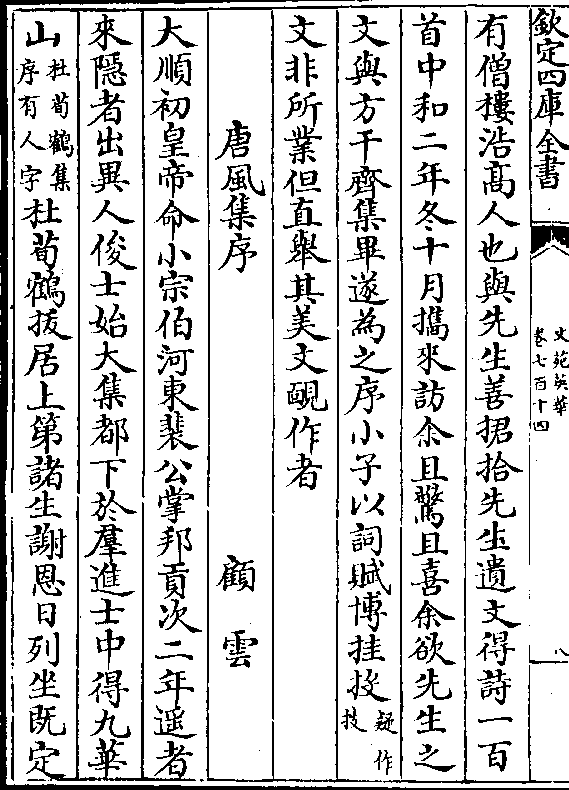 欽定四庫全書
文苑英華
卷七百十四
八
有僧樓浩髙人也與先生善捃拾先生遺文得詩一百
首中和二年冬十月攜來訪余且驚且喜余欲先生之
文與方干齊集畢遂為之序小子以詞賦博挂投疑作技
文非所業但直舉其美文覼作者
唐風集序 顧雲
大順初皇帝命小宗伯河東裴公掌邦貢次二年遥者
來隱者出異人俊士始大集都下於羣進士中得九華
山杜荀鶴集序有人字杜荀鶴拔居上第諸生謝恩日列坐既定